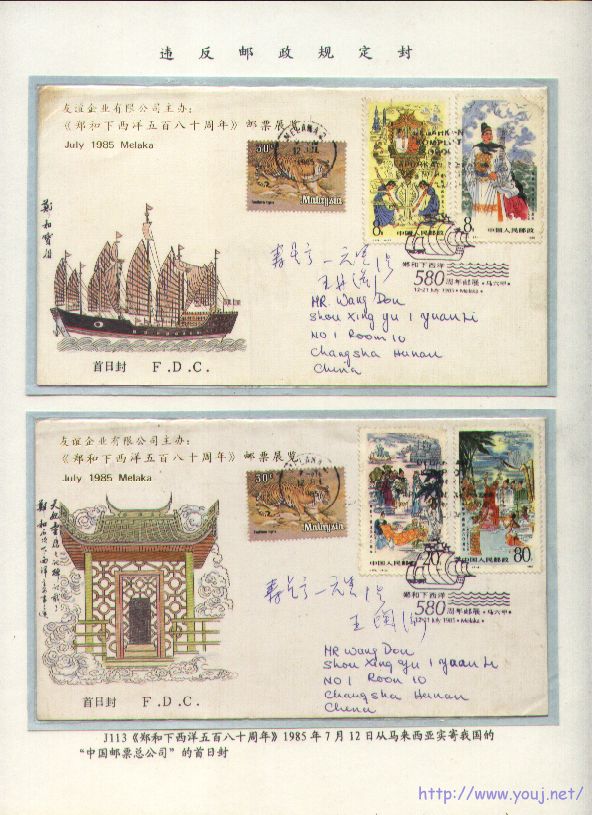 违反邮政规定封
友谊企业有限公司主办:
《郑和下西洋五百八十周年》邮票展览
July 1985 Melaka
郑和宝船
首日封 F.D.C.
MELAKA
1985
50¢
Malaysia
8分
中国人民邮政
8分
中国人民邮政
郑和下西洋
580周年邮展·马六甲·
12-21 July 1985·Melaka·
MR Wang Dou
Shou Xing yu 1 yuan Li
NO 1 Room 10
Changsha Hunan
China
友谊企业有限公司主办:
《郑和下西洋五百八十周年》邮票展览
July 1985 Melaka
首日封 F.D.C.
50¢
Malaysia
20分
中国人民邮政
80分
中国人民邮政
郑和下西洋
580周年邮展·马六甲·
12-21 July 1985·Melaka·
MR Wang Dou
Shou Xing yu 1 yuan Li
NO 1 Room 10
Changsha Hunan
China
J113《郑和下西洋五百八十周年》1985年7月12日从马来西亚实寄我国的
“中国邮票总公司”的首日封
http://www.youj.net/